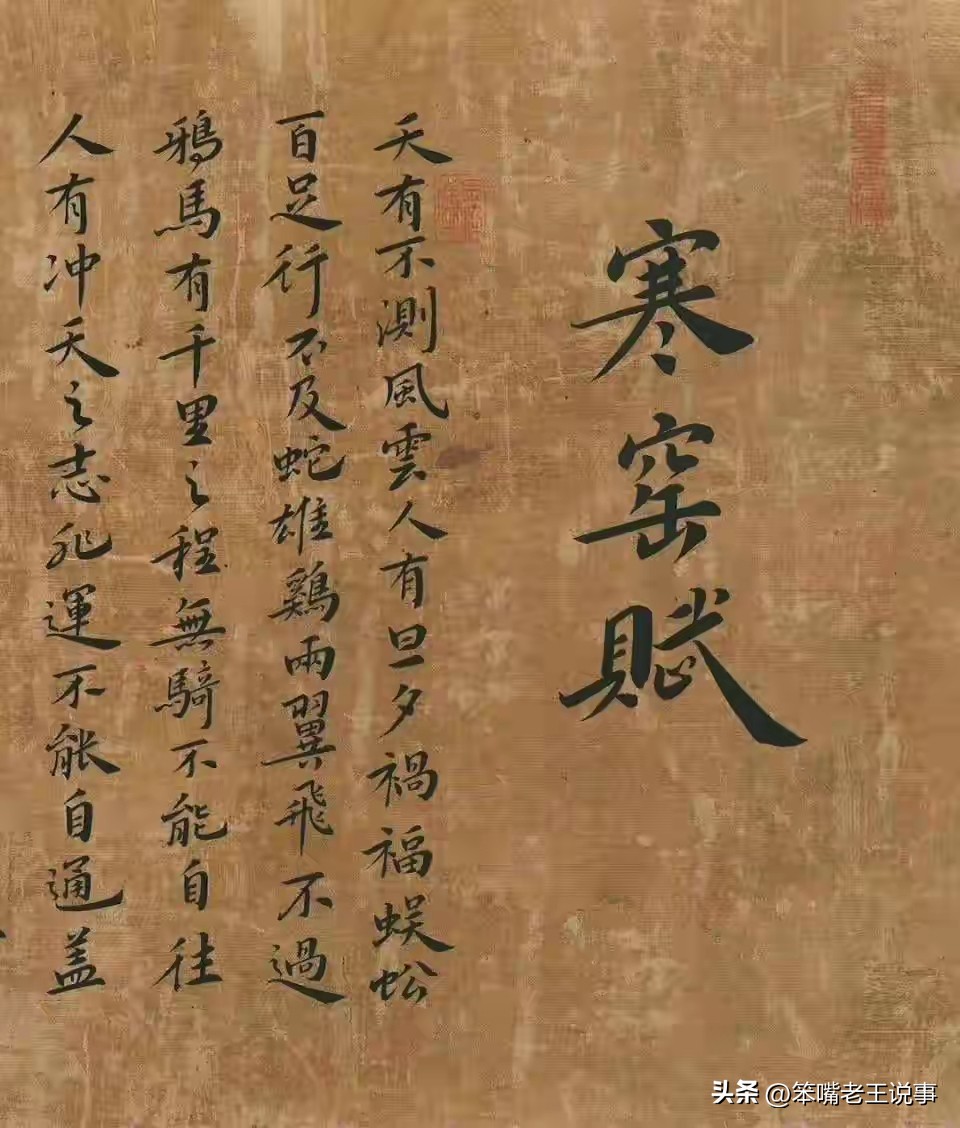 寒窑賦
天有不測風雲人有旦夕禍福蜈蚣
百足行不及蛇雄鷄兩翼飛不過
鴉馬有千里之程無騎不能自往
人有冲天之志非運不能自通盖
头条 @笨嘴老王说事